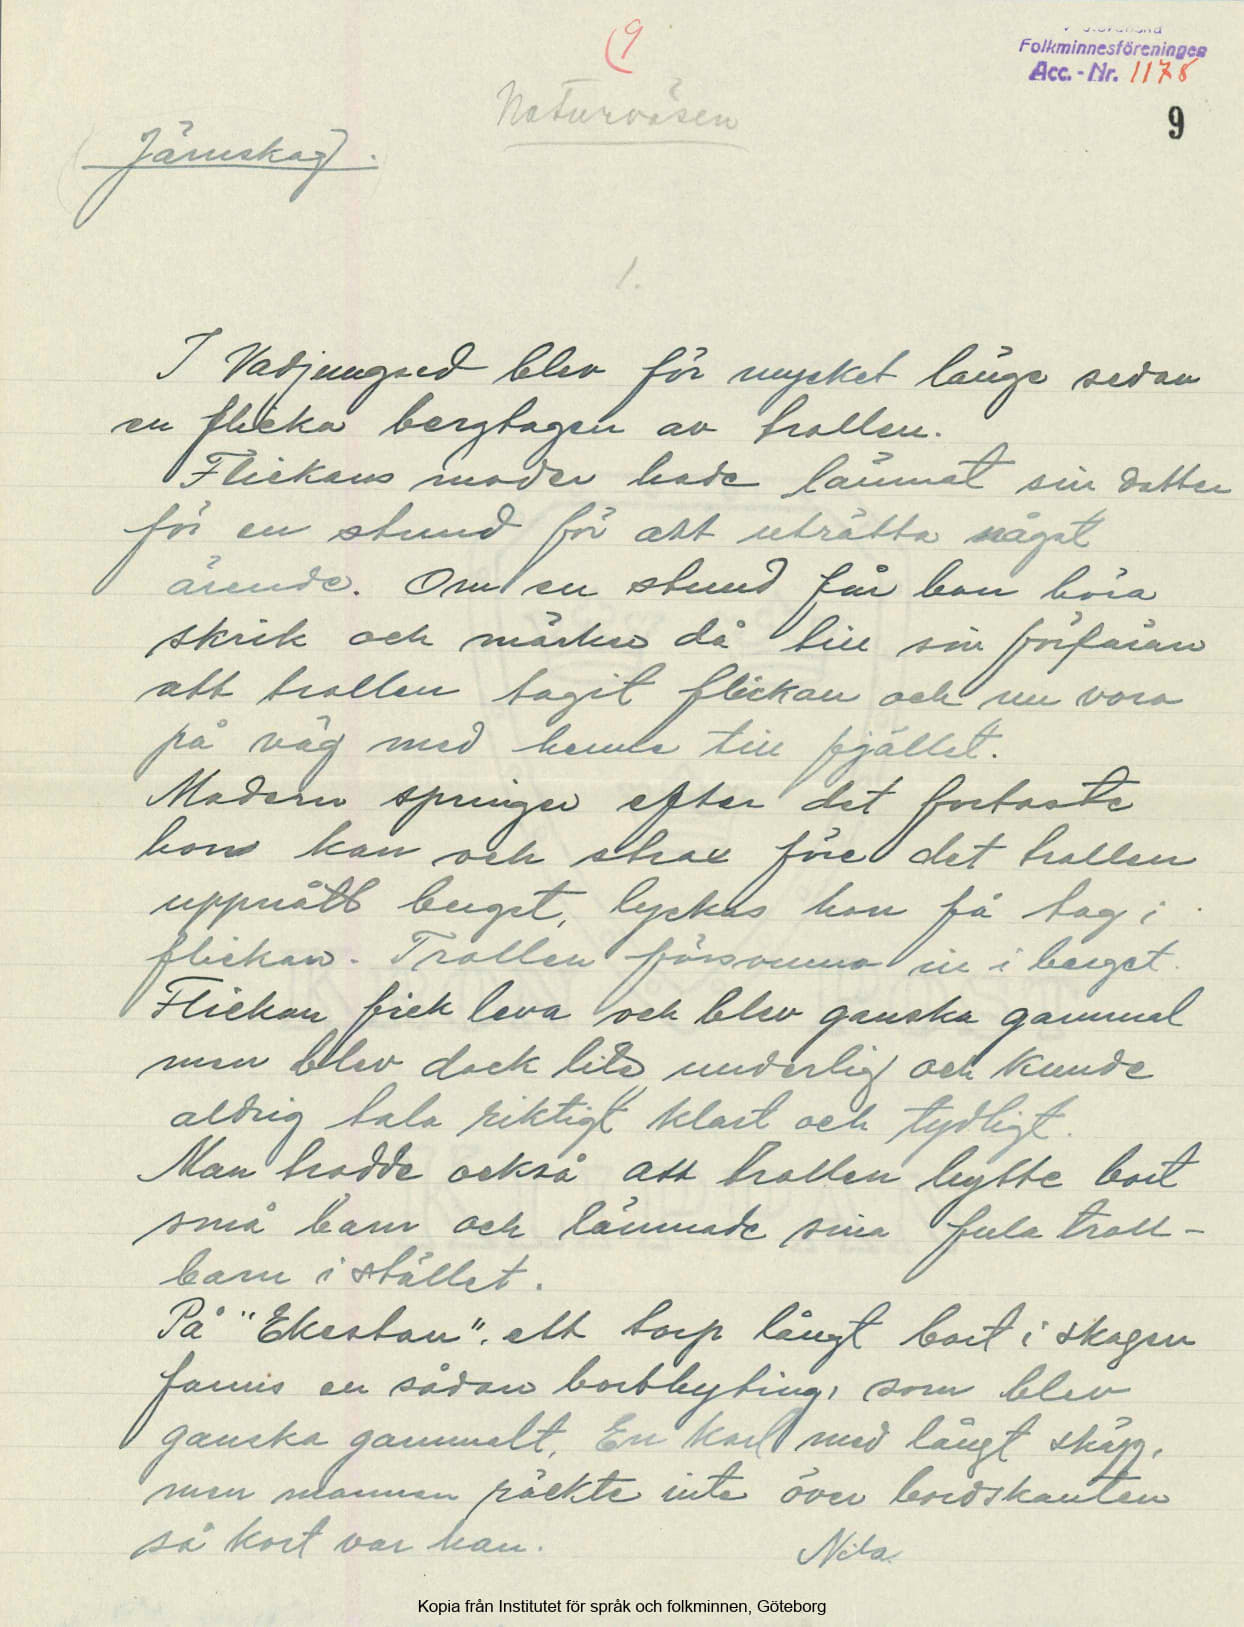 9
Folkminnesföreningen
Acc. - Nr. 1178
Naturväsen
9
Järnskog.
1.
I Vadjungsed blev för mycket länge sedan
en flicka bergtagen av trollen.
Flickans moder hade lämnat sin dotter
för en stund för att uträtta något
ärende. Om en stund får hon höra
skrik och märker då till sin förfäran
att trollen tagit flickan och nu voro
på väg med henne till fjället.
Modern springer efter det fortaste
hon kan och strax före det trollen
uppnått berget, lyckas hon få tag i
flickan. Trollen försvunno in i berget.
Flickan fick leva och blev ganska gammal
men blev dock lite underlig och kunde
aldrig tala riktigt klart och tydligt.
Man trodde också att trollen bytte bort
små barn och lämnade sina fula troll-
barn i stället.
På "Ekestan", ett torp långt bort i skogen
fanns en sådan bortbyting, som blev
ganska gammalt, En karl med långt skägg,
men mannen räckte inte över bordskanten
så kort var han.
Nita.
Kopia från Institutet för språk och folkminnen, Göteborg